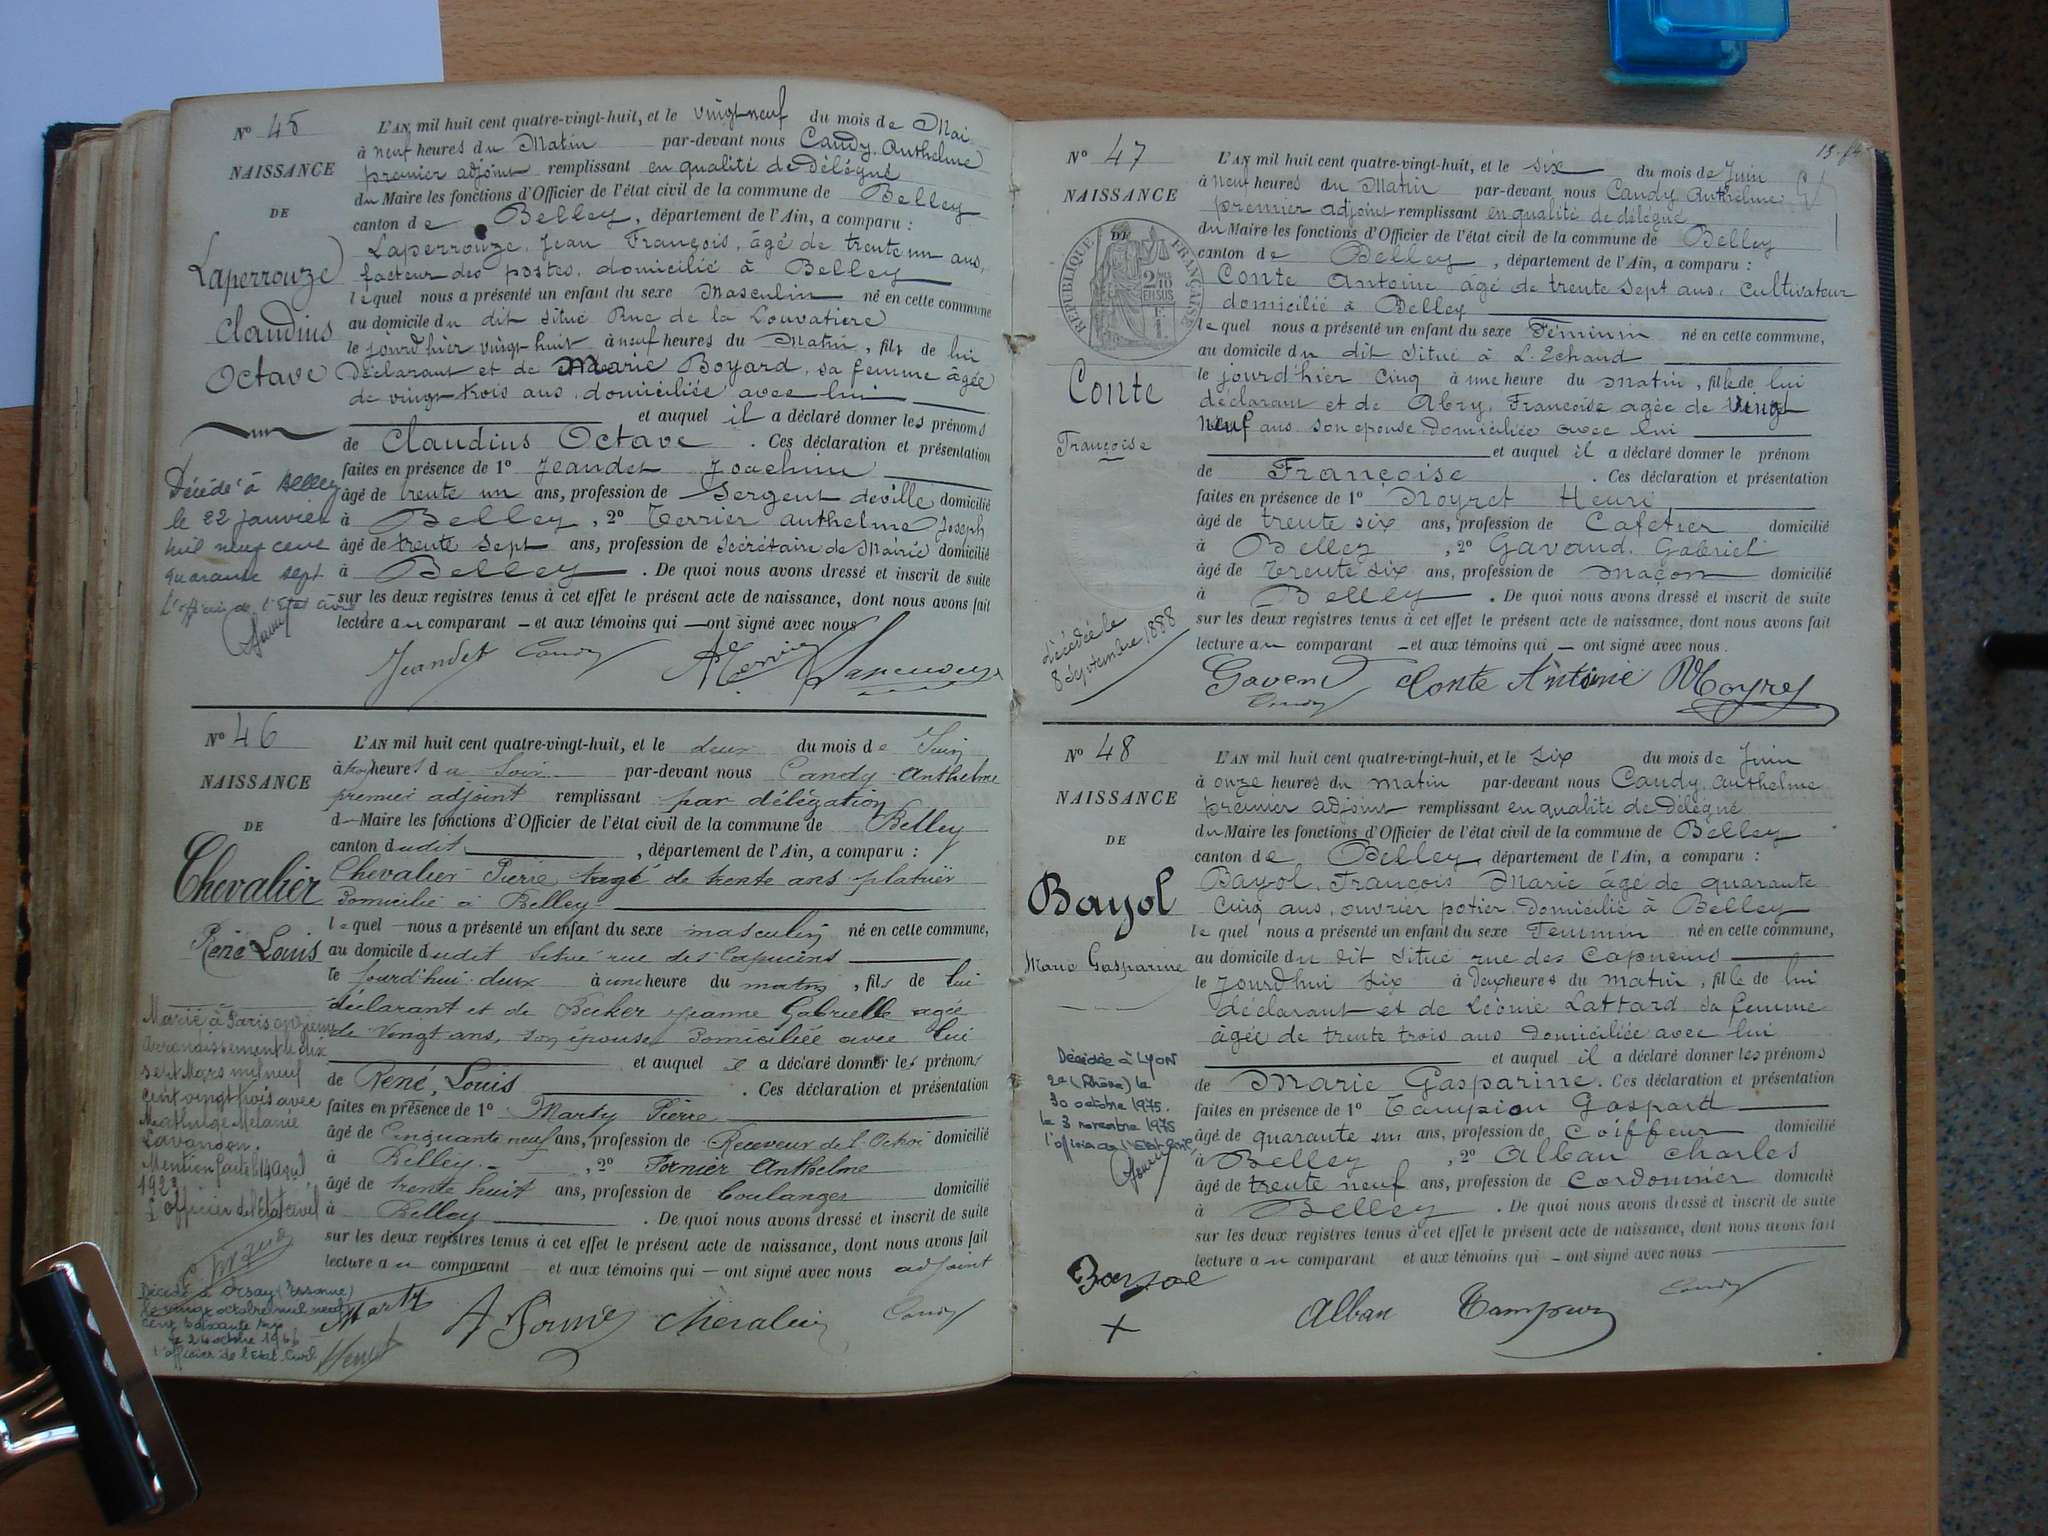 Nº 45
NAISSANCE
DE
Laperrouze
Claudius
Octave
Décédé à Belley
le 22 Janvier
mil neuf cent
quarante sept
L'officier de l'Etat civil
L'AN mil huit cent quatre-vingt-huit, et le vingt neuf du mois de Mai
à neuf heures du Matin par-devant nous Candy, Anthelme
premier adjoint remplissant en qualité de Délégué
du Maire les fonctions d'Officier de l'état civil de la commune de Belley
canton de Belley, département de l'Ain, a comparu :
Laperrouze, Jean François, âgé de trente un ans,
facteur des postes, domicilié à Belley
lequel nous a présenté un enfant du sexe Masculin né en cette commune
au domicile du dit situé Rue de la Louvatiere
le jourd'hier vingt-huit à neuf heures du Matin, fils de lui
Déclarant et de Marie Boyard, sa femme âgée
de vingt-trois ans, domiciliée avec lui
et auquel il a déclaré donner les prénoms
de Claudius Octave . Ces déclaration et présentation
faites en présence de 1º Jeandet Joachim
âgé de trente un ans, profession de Sergent de ville domicilié
à Belley, 2º Terrier Anthelme Joseph
âgé de trente sept ans, profession de Secrétaire de Mairie domicilié
à Belley . De quoi nous avons dressé et inscrit de suite
sur les deux registres tenus à cet effet le présent acte de naissance, dont nous avons fait
lecture au comparant et aux témoins qui ont signé avec nous
Jeandet Candy Laperrouze
Nº 46
NAISSANCE
DE
Chevalier
René Louis
Marié à Paris onzième
arrondissement le dix
sept Mars mil neuf
cent vingt trois avec
Mathilde Mélanie
Lavandon.
Mention faite le 14 avril
1923
L'officier de l'Etat civil
Décédé à Orsay (Essonne)
le vingt octobre mil neuf
cent soixante six
le 24 octobre 1966
L'officier de l'Etat Civil
L'AN mil huit cent quatre-vingt-huit, et le deux du mois de Juin
à heures du Soir par-devant nous Candy Anthelme
premier adjoint remplissant par délégation
du Maire les fonctions d'Officier de l'état civil de la commune de Belley
canton dudit, département de l'Ain, a comparu :
Chevalier Pierre âgé de trente ans platrier
Domicilié à Belley
lequel nous a présenté un enfant du sexe masculin né en cette commune,
au domicile dudit situé rue des Capucins
le jourd'hui deux à une heure du matin, fils de lui
déclarant et de Becker Jeanne Gabrielle agée
de vingt ans, son épouse Domiciliée avec lui
et auquel il a déclaré donner les prénoms
de René, Louis . Ces déclaration et présentation
faites en présence de 1º Marty Pierre
âgé de Cinquante neuf ans, profession de Receveur de l'Octroi domicilié
à Belley, 2º Fornier Anthelme
âgé de trente huit ans, profession de boulanger domicilié
à Belley . De quoi nous avons dressé et inscrit de suite
sur les deux registres tenus à cet effet le présent acte de naissance, dont nous avons fait
lecture au comparant et aux témoins qui ont signé avec nous adjoint
Marty Chevalier Candy
Nº 47
NAISSANCE
DE
RÉPUBLIQUE FRANÇAISE
Conte
Françoise
décédée le
8 Septembre 1888
L'AN mil huit cent quatre-vingt-huit, et le six du mois de Juin
à neuf heures du Matin par-devant nous Candy Anthelme
premier adjoint remplissant en qualité de délégué
du Maire les fonctions d'Officier de l'état civil de la commune de Belley
canton de Belley, département de l'Ain, a comparu :
Conte Antoine âgé de trente sept ans, cultivateur
domicilié à Belley
lequel nous a présenté un enfant du sexe Féminin né en cette commune,
au domicile du dit situé à L'Echaud
le jourd'hier cinq à une heure du matin, fille de lui
déclarant et de Abry, Francoise agée de vingt
neuf ans son epouse Domiciliée avec lui
et auquel il a déclaré donner le prénom
de Françoise . Ces déclaration et présentation
faites en présence de 1º Noyret Henri
âgé de trente six ans, profession de Cafetier domicilié
à Belley, 2º Gavand, Gabriel
âgé de trente six ans, profession de maçon domicilié
à Belley . De quoi nous avons dressé et inscrit de suite
sur les deux registres tenus à cet effet le présent acte de naissance, dont nous avons fait
lecture au comparant et aux témoins qui ont signé avec nous.
Gavend Conte Antoine Noyret
Candy
Nº 48
NAISSANCE
DE
Bayol
Marie Gasparine
Décédée à LYON
2e (Rhône) le
30 octobre 1975.
le 3 novembre 1975
l'officier de l'Etat Civil
L'AN mil huit cent quatre-vingt-huit, et le six du mois de Juin
à onze heures du matin par-devant nous Candy, Anthelme
premier adjoint remplissant en qualité de Délégué
du Maire les fonctions d'Officier de l'état civil de la commune de Belley
canton de Belley, département de l'Ain, a comparu :
Bayol, François Marie âgé de quarante
cinq ans, ouvrier potier, Domicilié à Belley
lequel nous a présenté un enfant du sexe Feminin né en cette commune,
au domicile du dit situé rue des Capucins
le jourd'hui six à deux heures du matin, fille de lui
déclarant et de Léonie Lattard sa femme
âgée de trente trois ans Domiciliée avec lui
et auquel il a déclaré donner les prénoms
de Marie Gasparine. Ces déclaration et présentation
faites en présence de 1º Tampion Gaspard
âgé de quarante un ans, profession de Coiffeur domicilié
à Belley, 2º Alban Charles
âgé de trente neuf ans, profession de Cordonnier domicilié
à Belley . De quoi nous avons dressé et inscrit de suite
sur les deux registres tenus à cet effet le présent acte de naissance, dont nous avons fait
lecture au comparant et aux témoins qui ont signé avec nous
Alban Candy